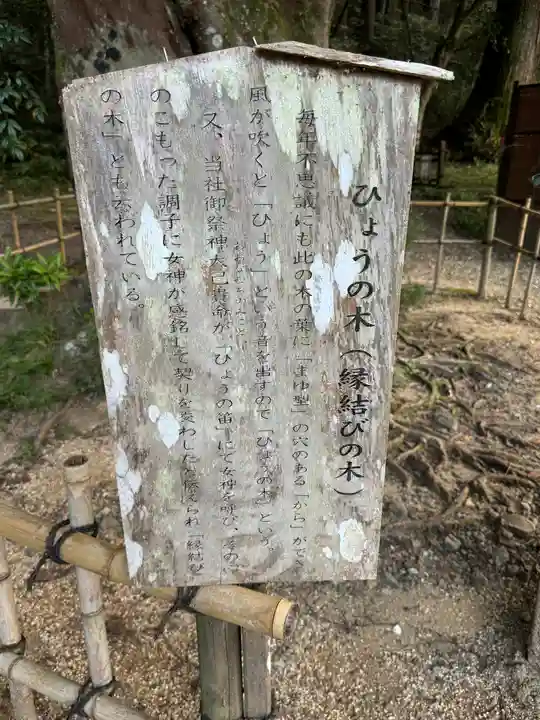 ひょうの木（縁結びの木）
毎年不思議にも此の木の葉に「まゆ型」の穴のある「から」ができ
風が吹くと「ひょう」という音を出すので「ひょうの木」という。
又、当社御祭神大己貴命が「ひょうの笛」にて女神を呼び、その
のこもった調子に女神が感銘して契りを交わしたと伝えられ「縁結び
の木」とも云われている。